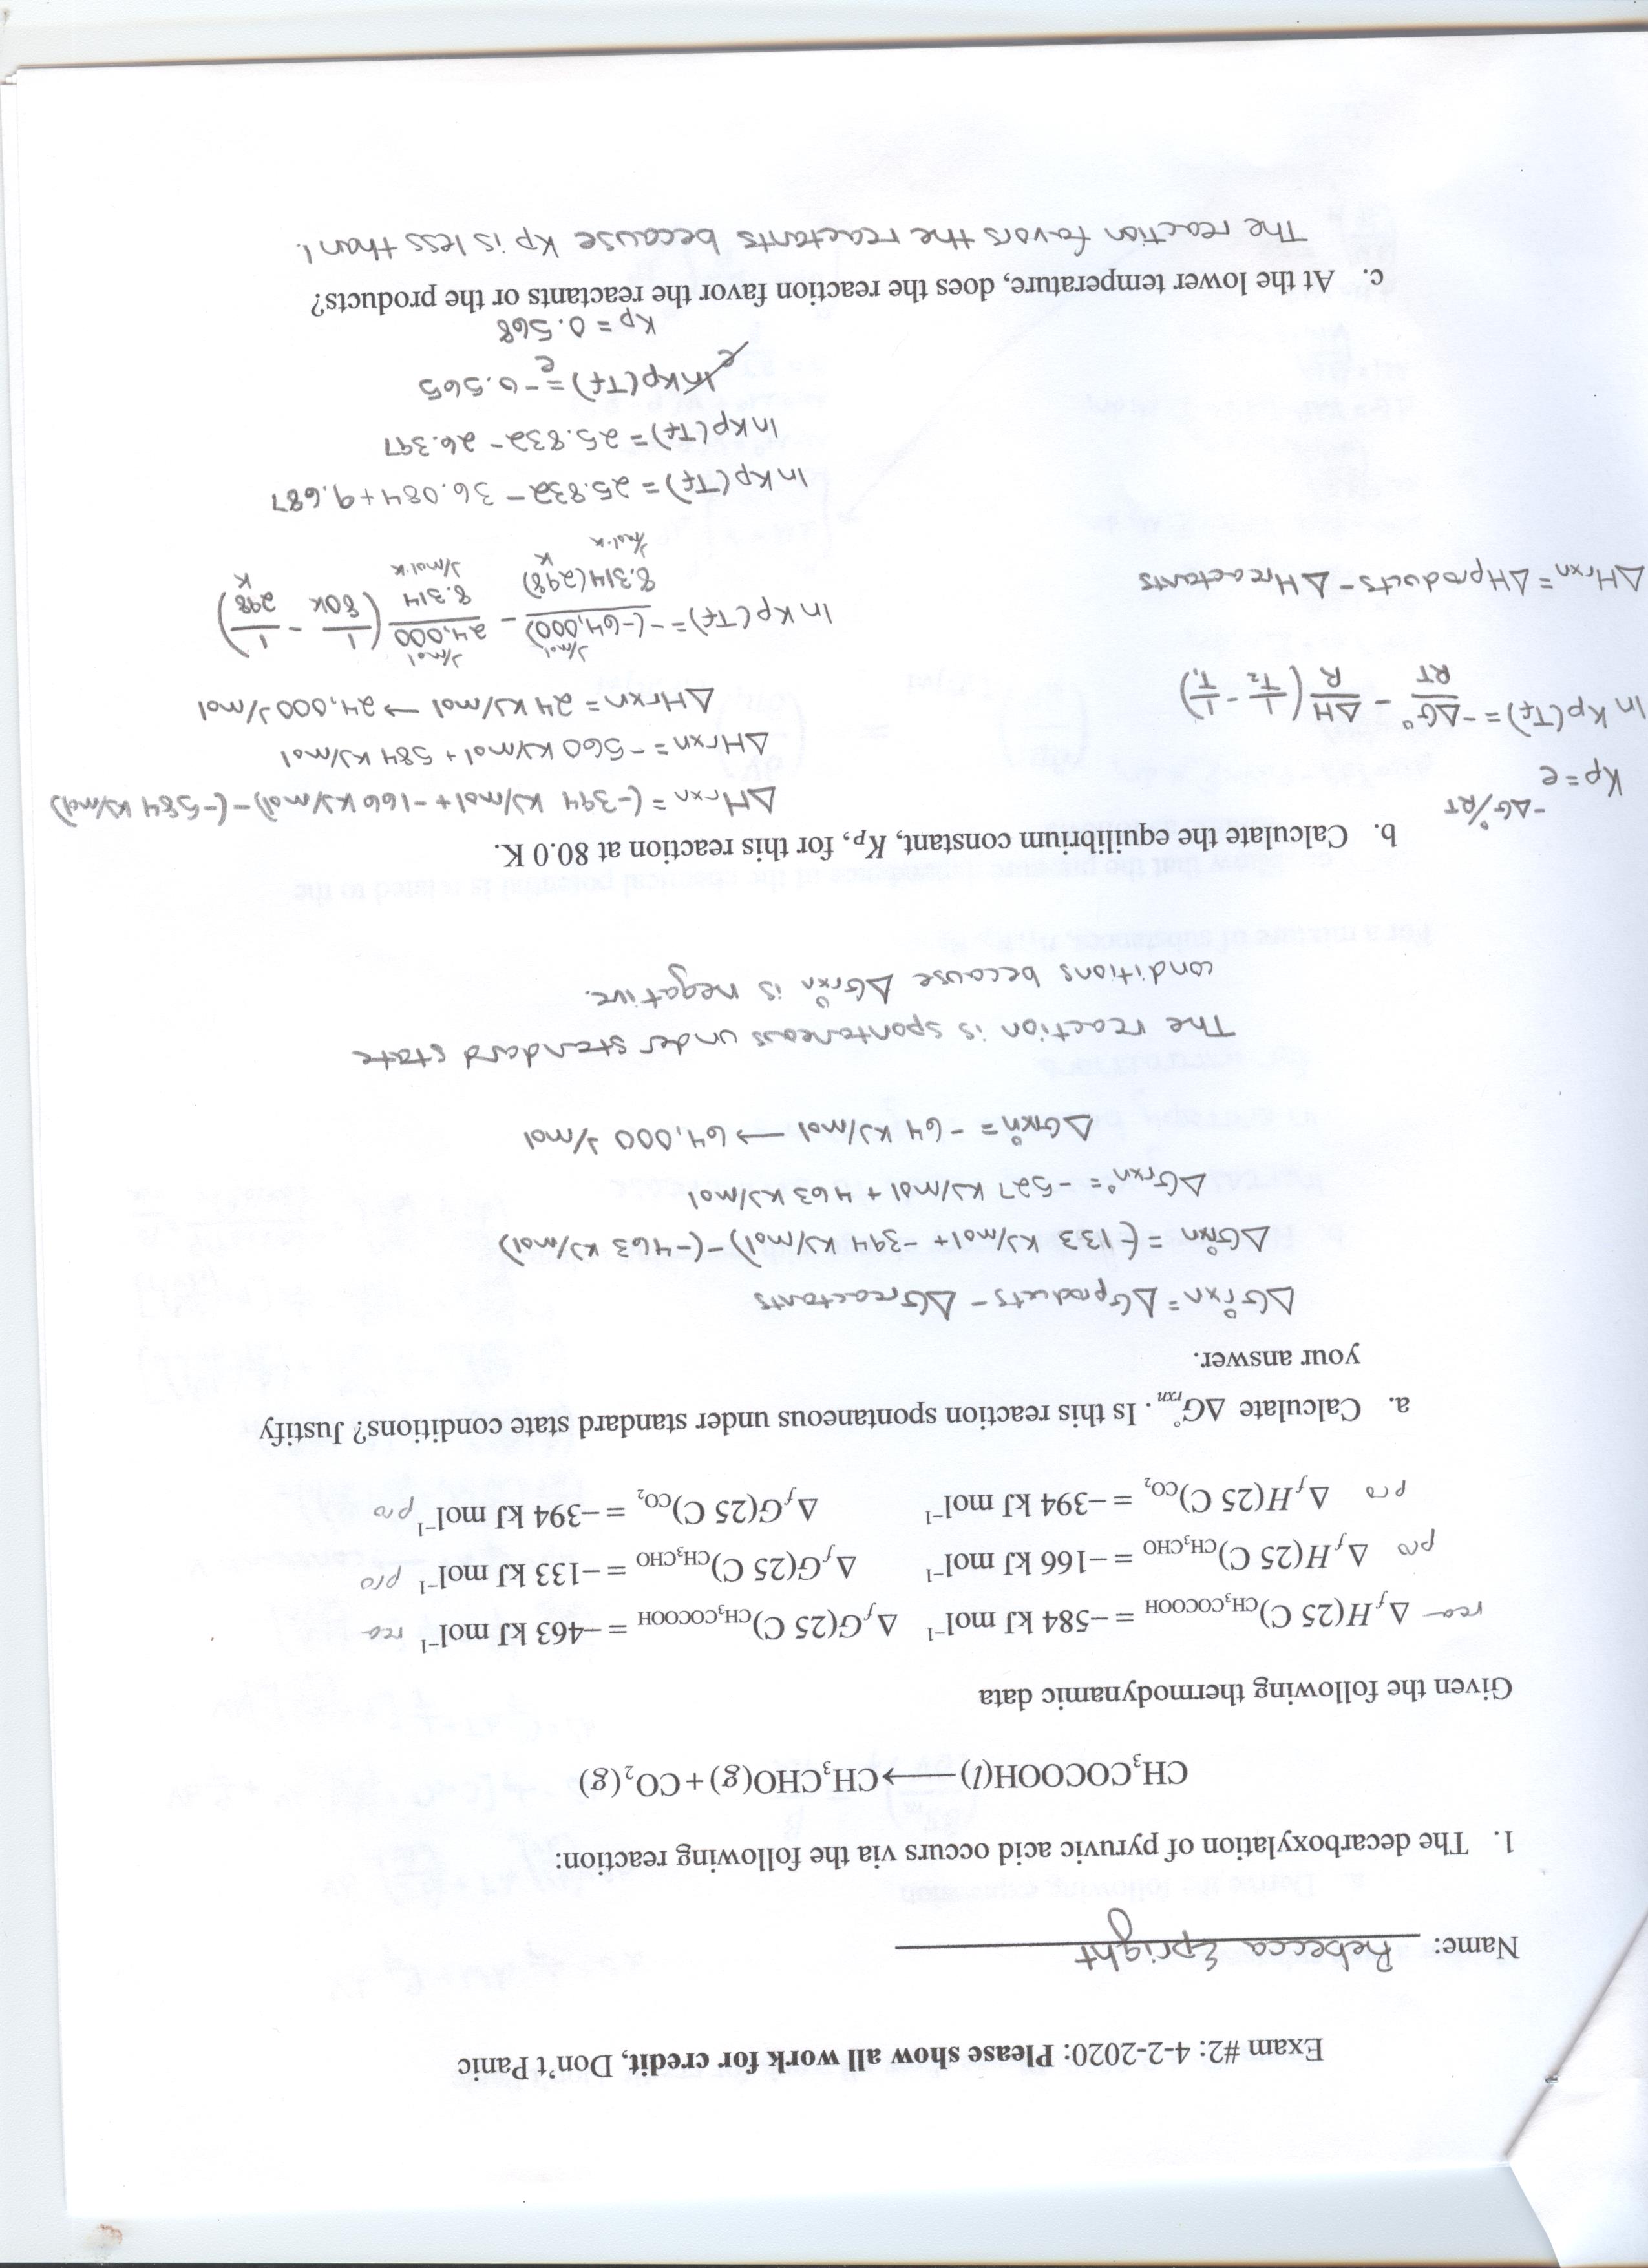 Exam #2: 4-2-2020: Please show all work for credit, Don't Panic
Name: Rebecca Epright
1. The decarboxylation of pyruvic acid occurs via the following reaction:
CH₃COCOOH(l)⟶CH₃CHO(g)+CO₂(g)
Given the following thermodynamic data
rea Δ_fH(25 C)_CH₃COCOOH = −584 kJ mol⁻¹ Δ_fG(25 C)_CH₃COCOOH = −463 kJ mol⁻¹ rea
pro Δ_fH(25 C)_CH₃CHO = −166 kJ mol⁻¹ Δ_fG(25 C)_CH₃CHO = −133 kJ mol⁻¹ pro
pro Δ_fH(25 C)_CO₂ = −394 kJ mol⁻¹ Δ_fG(25 C)_CO₂ = −394 kJ mol⁻¹ pro
a. Calculate ΔG°rxn. Is this reaction spontaneous under standard state conditions? Justify
your answer.
ΔG°rxn = ΔGproducts − ΔGreactants
ΔG°rxn = (-133 KJ/mol + -394 KJ/mol) − (-463 KJ/mol)
ΔGrxn° = -527 KJ/mol + 463 KJ/mol
ΔG°rxn = -64 KJ/mol → 64,000 J/mol
The reaction is spontaneous under standard state
conditions because ΔG°rxn is negative.
b. Calculate the equilibrium constant, K_P, for this reaction at 80.0 K.
Kp = e^(-ΔG°/RT)
ln Kp(Tf) = -ΔG°/RT − ΔH/R (1/T₂ − 1/T₁)
ΔHrxn = ΔHproducts − ΔHreactants
ΔHrxn = (-394 KJ/mol + -166 KJ/mol) − (-584 KJ/mol)
ΔHrxn = -560 KJ/mol + 584 KJ/mol
ΔHrxn = 24 KJ/mol → 24,000 J/mol
ln Kp(Tf) = -(-64,000) J/mol / 8.314 J/mol·K (298) K − 24,000 J/mol / 8.314 J/mol·K (1/80K − 1/298 K)
ln Kp(Tf) = 25.832 − 36.084 + 9.687
ln Kp(Tf) = 25.832 − 26.397
e ln Kp(Tf) = e -0.565
Kp = 0.568
c. At the lower temperature, does the reaction favor the reactants or the products?
The reaction favors the reactants because Kp is less than 1.